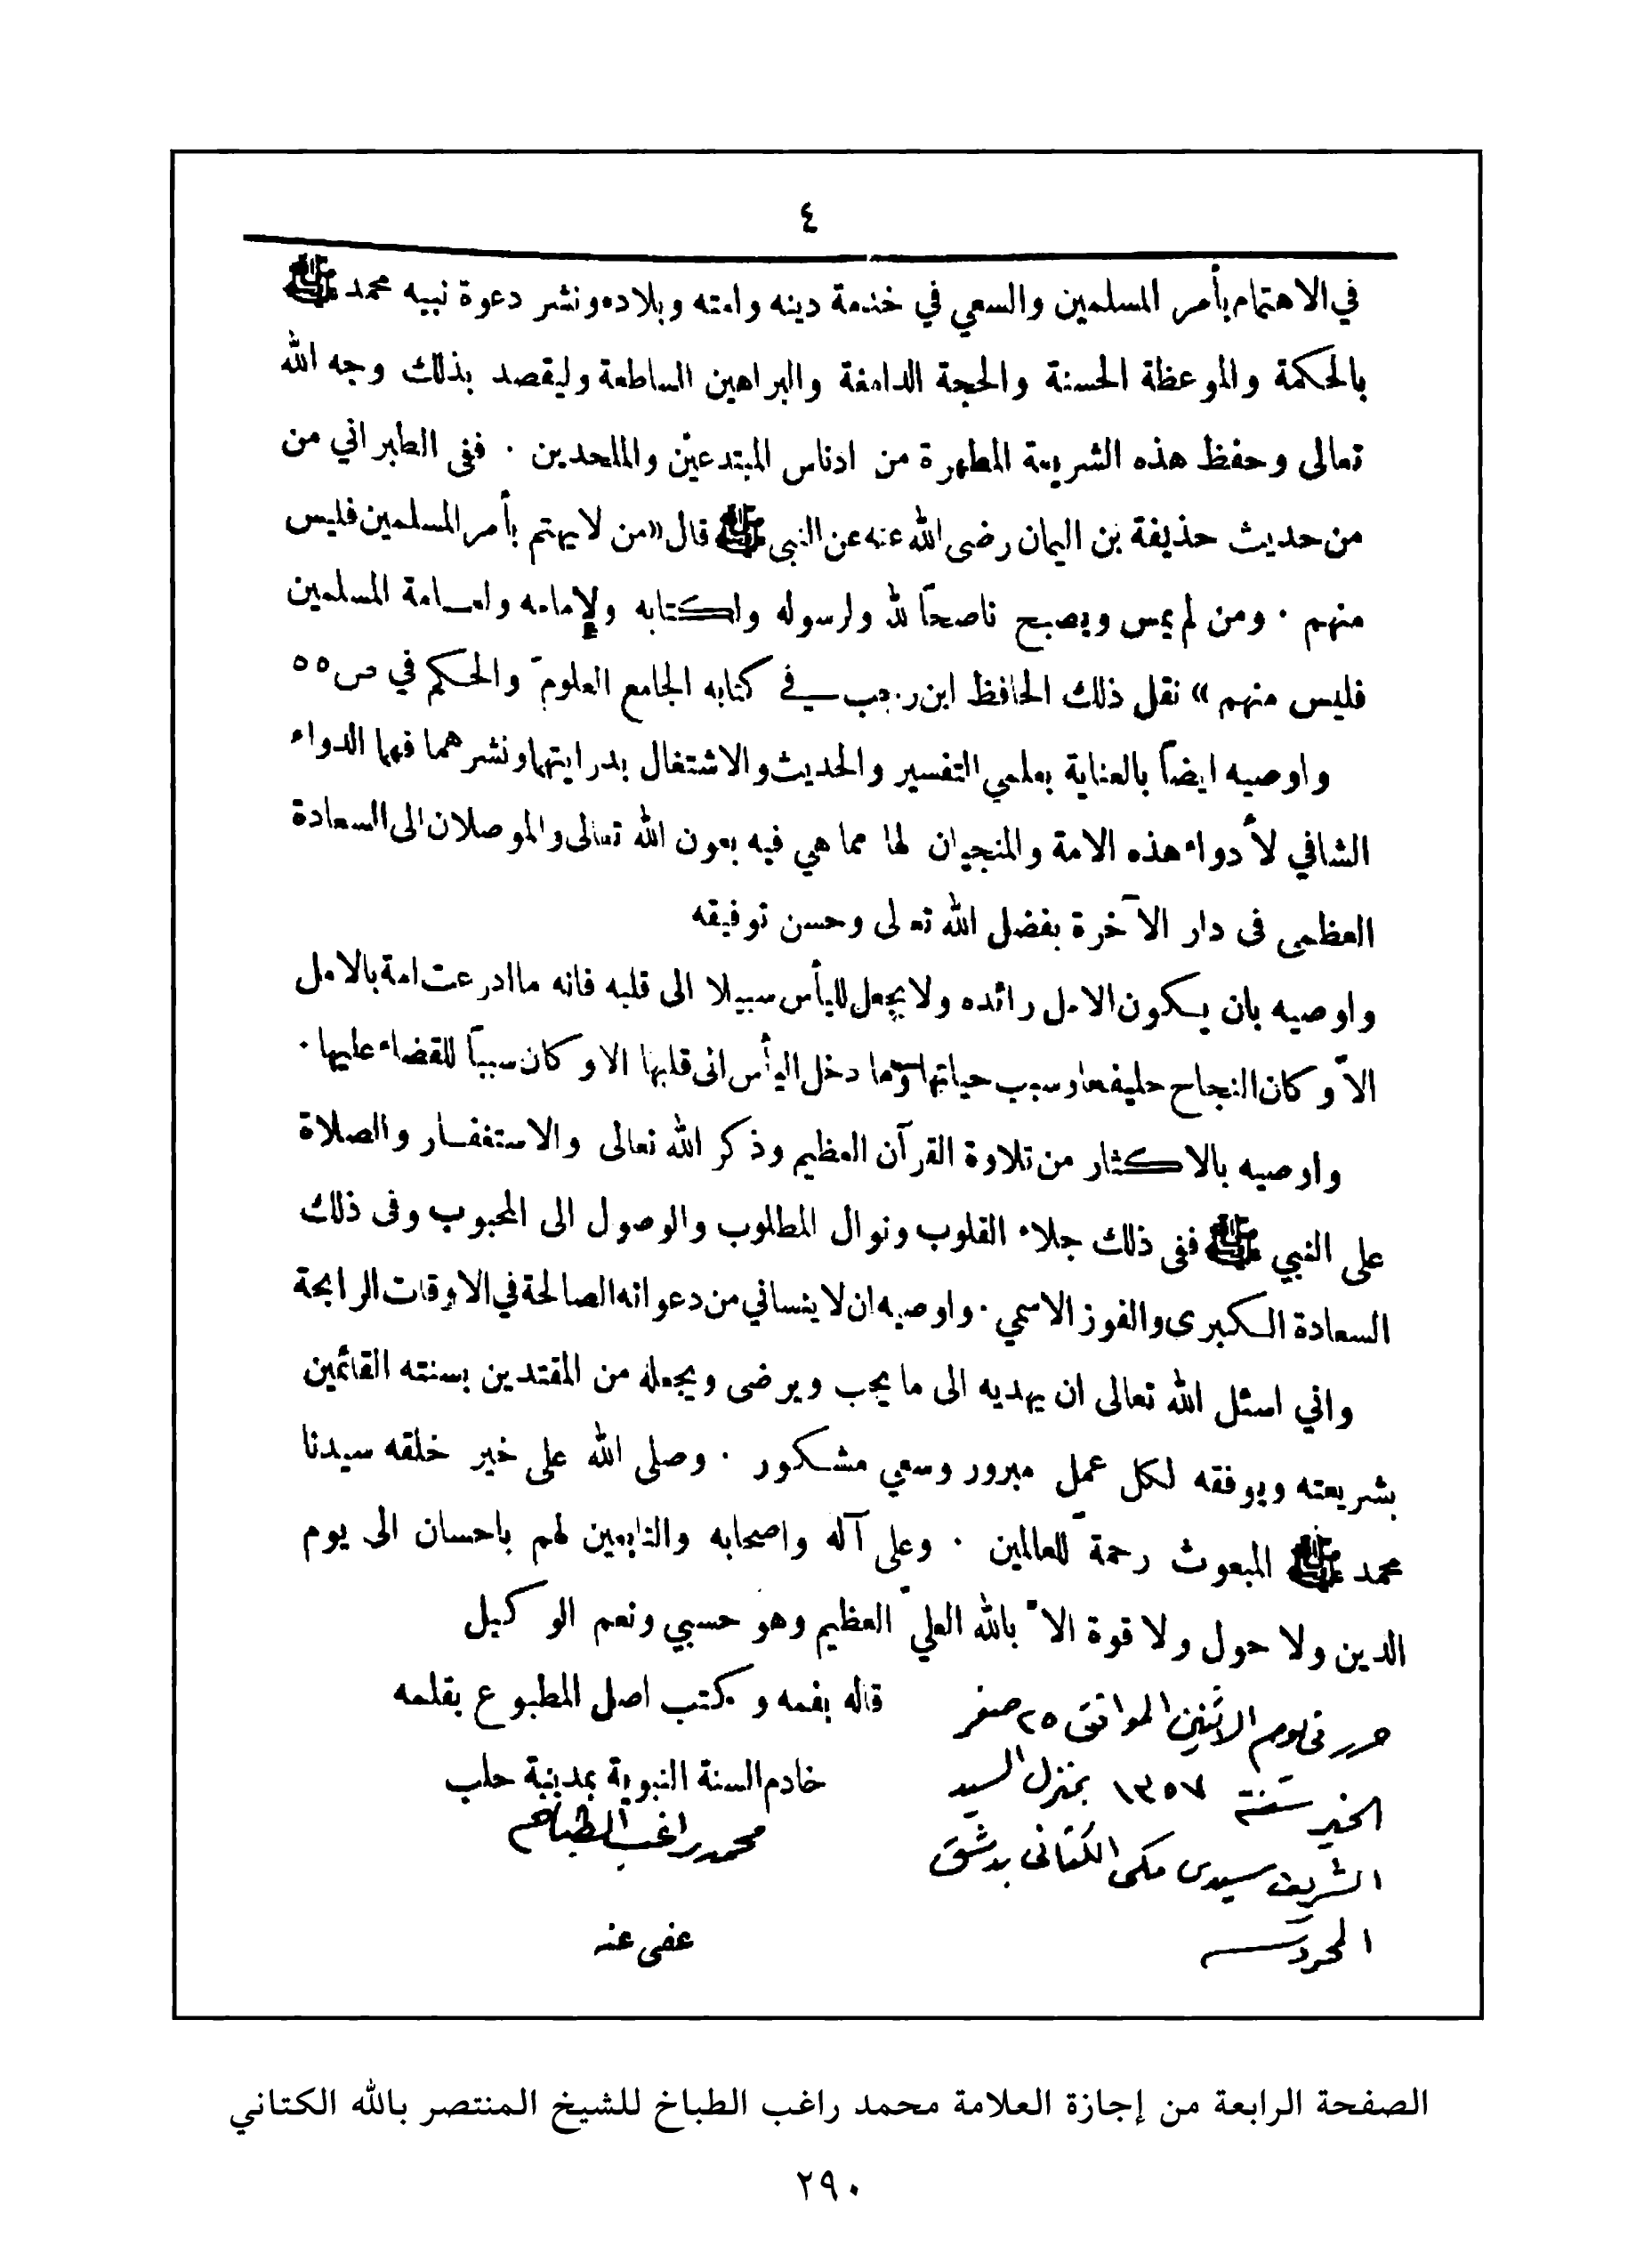 ٤
في الاهتمام بأمر المسلمين والسعي في خدمة دينه وامته وبلاده ونشر دعوة نبيه محمد ﷺ
بالحكمة والموعظة الحسنة والحجة الدامغة والبراهين الساطعة وليقصد بذلك وجه الله
تعالى وحفظ هذه الشريعة المطهرة من ادناس المبتدعين والملحدين . ففى الطبراني من
من حديث حذيفة بن اليمان رضى الله عنه عن النبي ﷺ قال «من لا يهتم بأمر المسلمين فليس
منهم . ومن لم يمس ويصبح ناصحاً لله ولرسوله ولكتابه ولإمامه ولعامة المسلمين
فليس منهم » نقل ذلك الحافظ ابن رجب في كتابه الجامع العلوم والحكم في ص ٥٥
واوصيه ايضاً بالعناية بعلمي التفسير والحديث والاشتغال بدرايتهما ونشرهما فهما الدواء
الشافي لأدواء هذه الامة والمنجيان لها مما هي فيه بعون الله تعالى والموصلان الى السعادة
العظمى فى دار الآخرة بفضل الله تعالى وحسن توفيقه
واوصيه بان يكون الامل رائده ولا يجعل لليأس سبيلا الى قلبه فانه ما ادرعت امة بالامل
الاّ وكان النجاح حليفها وسبب حياتها وما دخل اليأس الى قلبها الا وكان سبباً للقضاء عليها .
واوصيه بالاكثار من تلاوة القرآن العظيم وذكر الله تعالى والاستغفار والصلاة
على النبي ﷺ ففى ذلك جلاء القلوب ونوال المطلوب والوصول الى المحبوب وفى ذلك
السعادة الكبرى والفوز الاسمي . واوصيه ان لا ينساني من دعواته الصالحة في الاوقات الرابحة
واني اسئل الله تعالى ان يهديه الى ما يحب ويرضى ويجعله من المقتدين بسنته القائمين
بشريعته ويوفقه لكل عمل مبرور وسعي مشكور . وصلى الله على خير خلقه سيدنا
محمد ﷺ المبعوث رحمة للعالمين . وعلى آله واصحابه والتابعين لهم باحسان الى يوم
الدين ولا حول ولا قوة الا بالله العلي العظيم وهو حسبي ونعم الوكيل
قاله بفمه وكتب اصل المطبوع بقلمه
خادم السنة النبوية بمدينة حلب
محمد راغب الطباخ
عفى عنه
حرر فى يوم الاثنين الموافق ٢٥ صفر
الخير سنة ١٣٥٧ بمنزل السيد
الشريف سيدى مكى الكتانى بدمشق
المحروسة
الصفحة الرابعة من إجازة العلامة محمد راغب الطباخ للشيخ المنتصر بالله الكتاني
٢٩٠